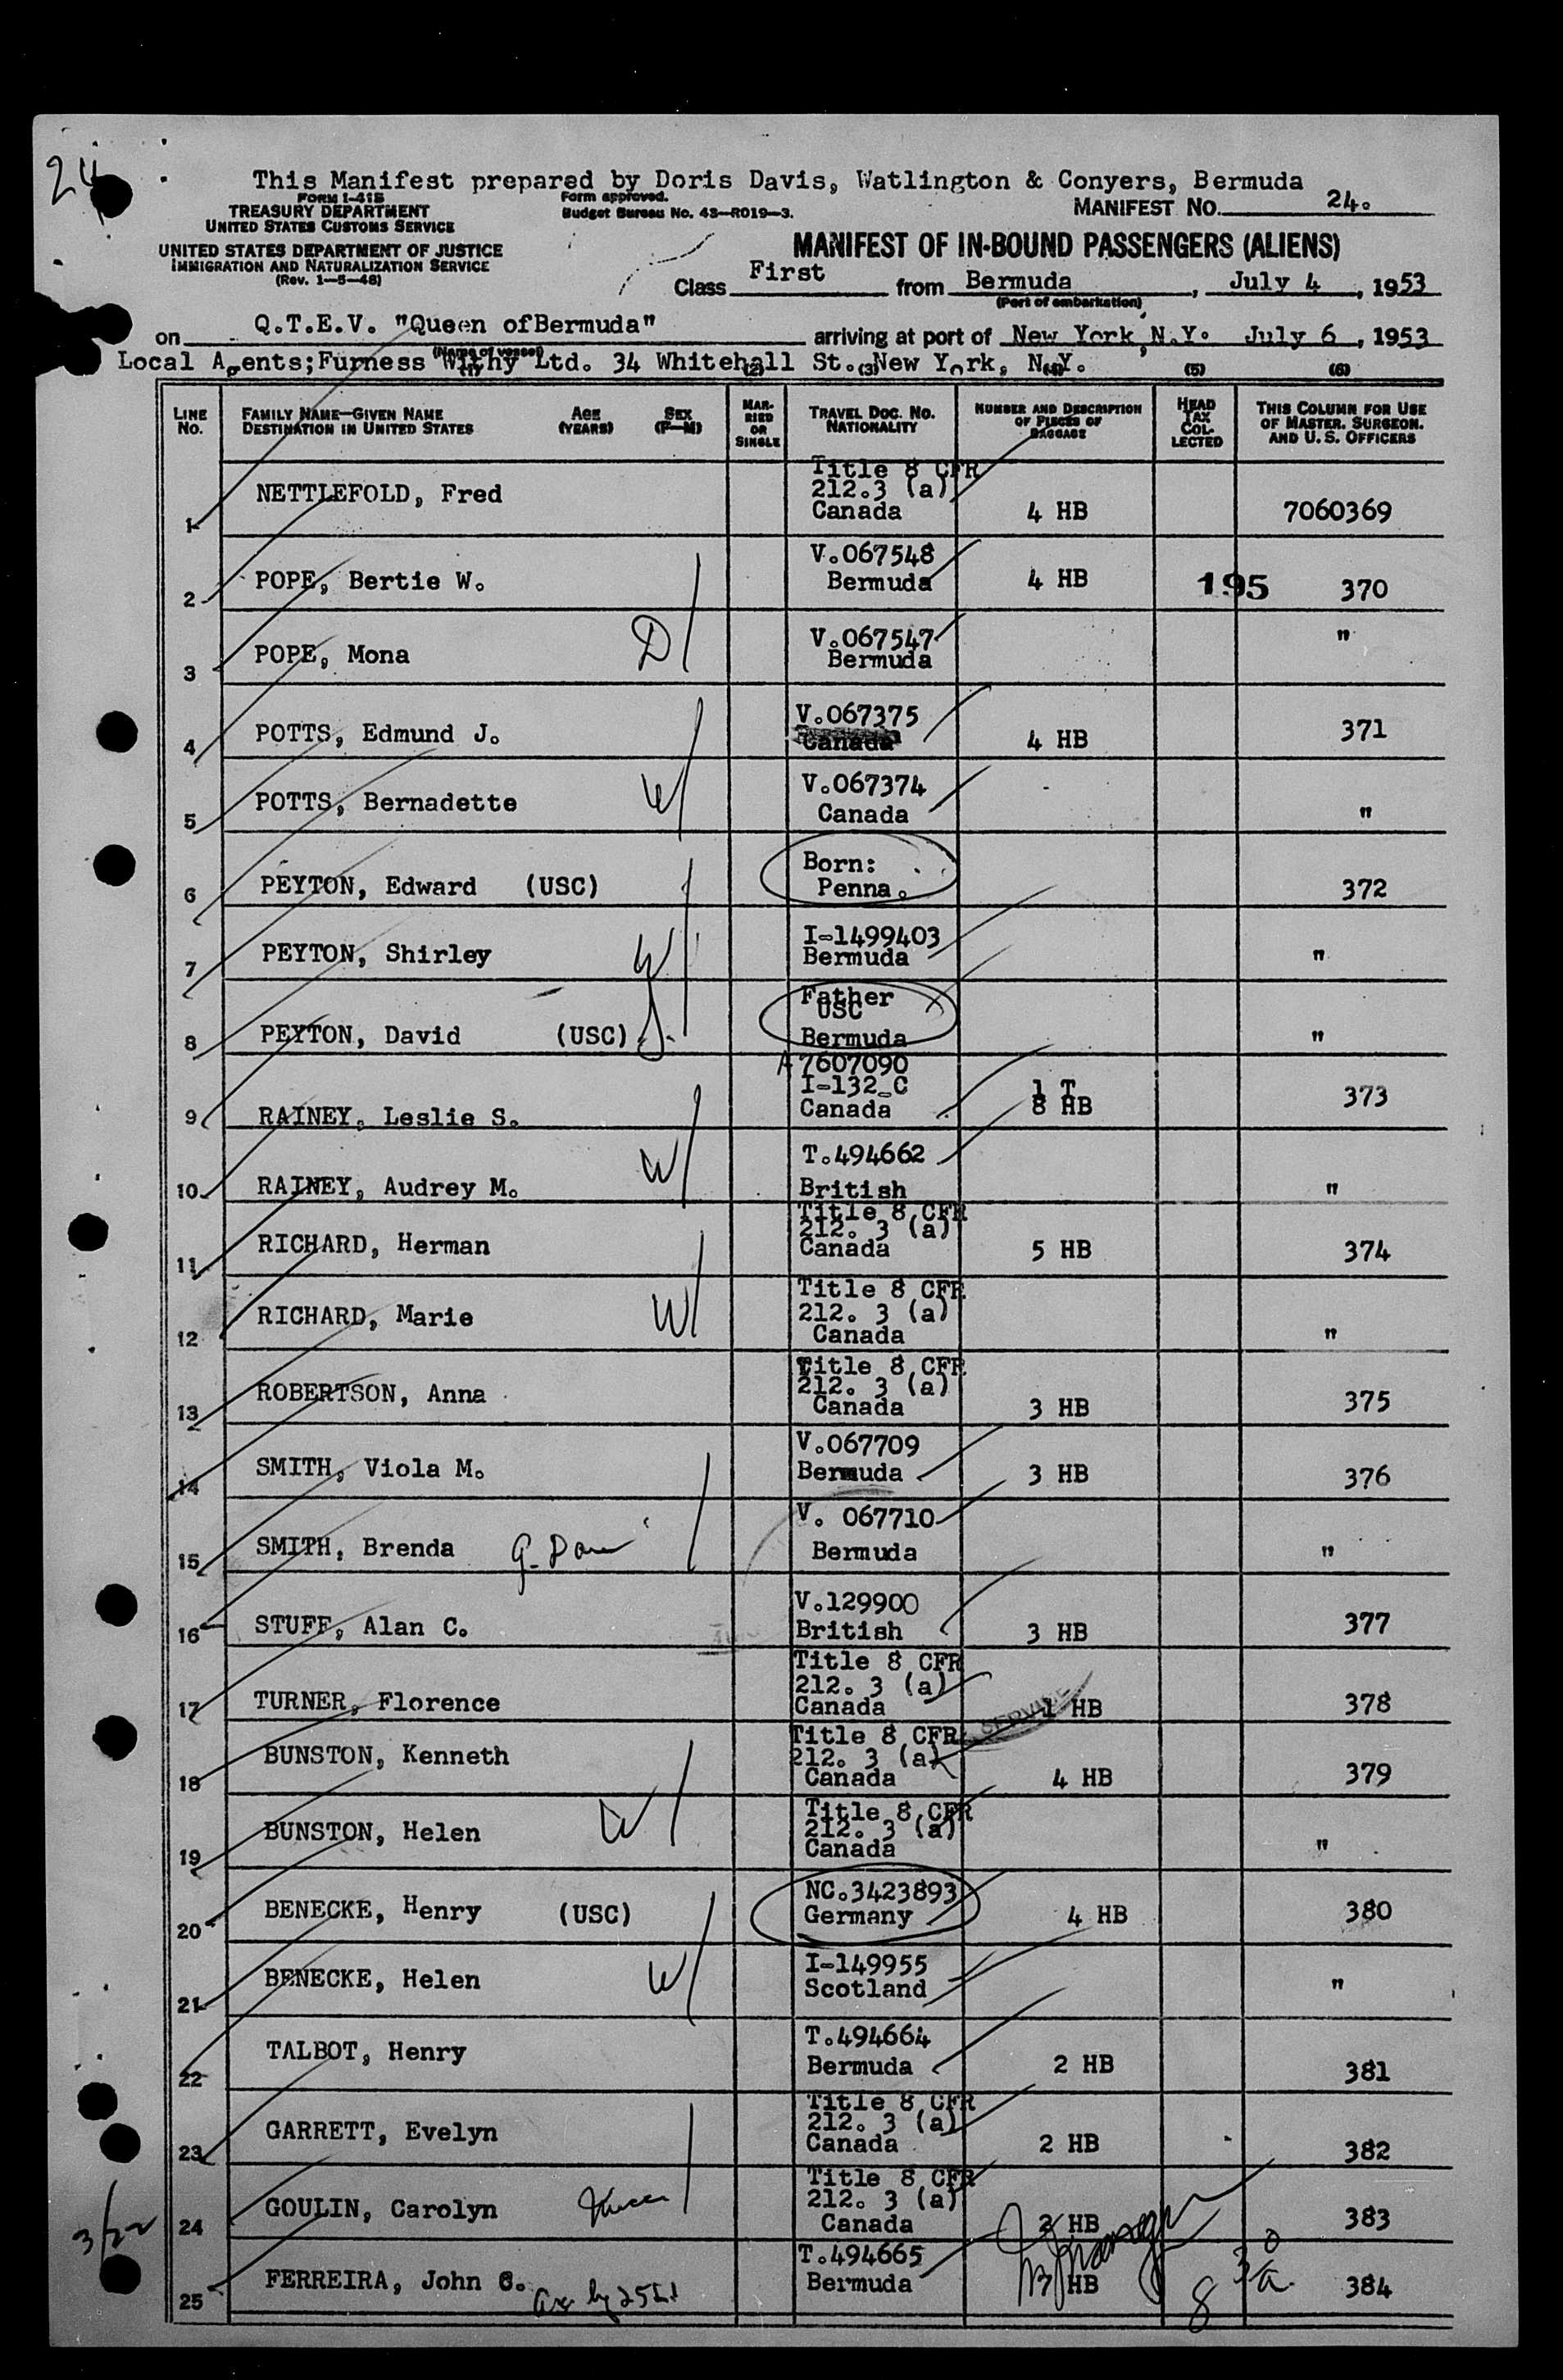 24
This Manifest prepared by Doris Davis, Watlington & Conyers, Bermuda
FORM I-418
TREASURY DEPARTMENT
UNITED STATES CUSTOMS SERVICE
UNITED STATES DEPARTMENT OF JUSTICE
IMMIGRATION AND NATURALIZATION SERVICE
(Rev. 1-5-48)
Form approved.
Budget Bureau No. 43-R019-3.
MANIFEST NO. 24.
MANIFEST OF IN-BOUND PASSENGERS (ALIENS)
Class First from Bermuda, July 4, 1953
(Port of embarkation)
on Q.T.E.V. "Queen ofBermuda" arriving at port of New York, N.Y. July 6, 1953
(Name of vessel)
Local Agents;Furness Withy Ltd. 34 Whitehall St. New York, N.Y.
(1) (2) (3) (4) (5) (6)
LINE NO. FAMILY NAME-GIVEN NAME DESTINATION IN UNITED STATES AGE (YEARS) SEX (F-M) MARRIED OR SINGLE TRAVEL DOC. NO. NATIONALITY NUMBER AND DESCRIPTION OF PIECES OF BAGGAGE HEAD TAX COLLECTED THIS COLUMN FOR USE OF MASTER, SURGEON, AND U.S. OFFICERS
1 NETTLEFOLD, Fred Title 8 CFR 212.3 (a) Canada 4 HB 7060369
2 POPE, Bertie W. V.067548 Bermuda 4 HB 195 370
3 POPE, Mona D V.067547 Bermuda "
4 POTTS, Edmund J. V.067375 Canada 4 HB 371
5 POTTS, Bernadette W V.067374 Canada "
6 PEYTON, Edward (USC) Born: Penna. 372
7 PEYTON, Shirley W I-1499403 Bermuda "
8 PEYTON, David (USC) Father USC Bermuda "
9 RAINEY, Leslie S. A 7607090 I-132 C Canada 1 T 8 HB 373
10 RAINEY, Audrey M. W T.494662 British "
11 RICHARD, Herman Title 8 CFR 212. 3 (a) Canada 5 HB 374
12 RICHARD, Marie W Title 8 CFR 212. 3 (a) Canada "
13 ROBERTSON, Anna Title 8 CFR 212. 3 (a) Canada 3 HB 375
14 SMITH, Viola M. V.067709 Bermuda 3 HB 376
15 SMITH, Brenda V. 067710 Bermuda "
16 STUFF, Alan C. V.129900 British 3 HB 377
17 TURNER, Florence Title 8 CFR 212. 3 (a) Canada 1 HB 378
18 BUNSTON, Kenneth Title 8 CFR 212. 3 (a) Canada 4 HB 379
19 BUNSTON, Helen W Title 8 CFR 212. 3 (a) Canada "
20 BENECKE, Henry (USC) NC.3423893 Germany 4 HB 380
21 BENECKE, Helen W I-149955 Scotland "
22 TALBOT, Henry T.494664 Bermuda 2 HB 381
23 GARRETT, Evelyn Title 8 CFR 212. 3 (a) Canada 2 HB 382
24 GOULIN, Carolyn Title 8 CFR 212. 3 (a) Canada 2 HB 383
25 FERREIRA, John T.494665 Bermuda 7 HB 384
3/22